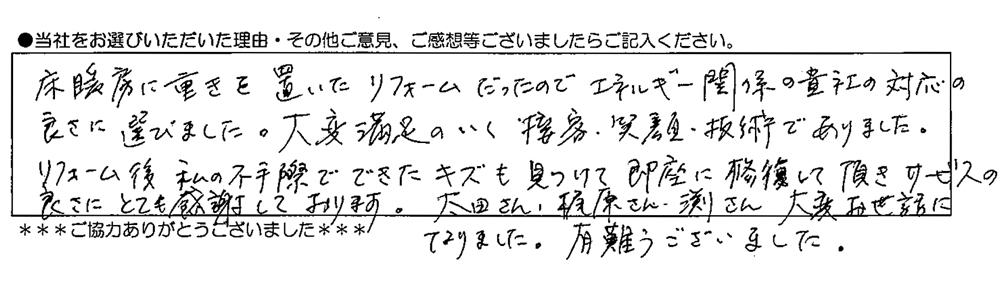 ●当社をお選びいただいた理由・その他ご意見、ご感想等ございましたらご記入ください。
床暖房に重きを置いたリフォームだったのでエネルギー関係の貴社の対応の
良さに選びました。大変満足のいく接客・笑顔・技術でありました。
リフォーム後私の不手際でできたキズも見つけて即座に修復して頂きサービスの
良さにとても感謝しております。太田さん・梶原さん・渕さん大変お世話に
なりました。有難うございました。
***ご協力ありがとうございました***